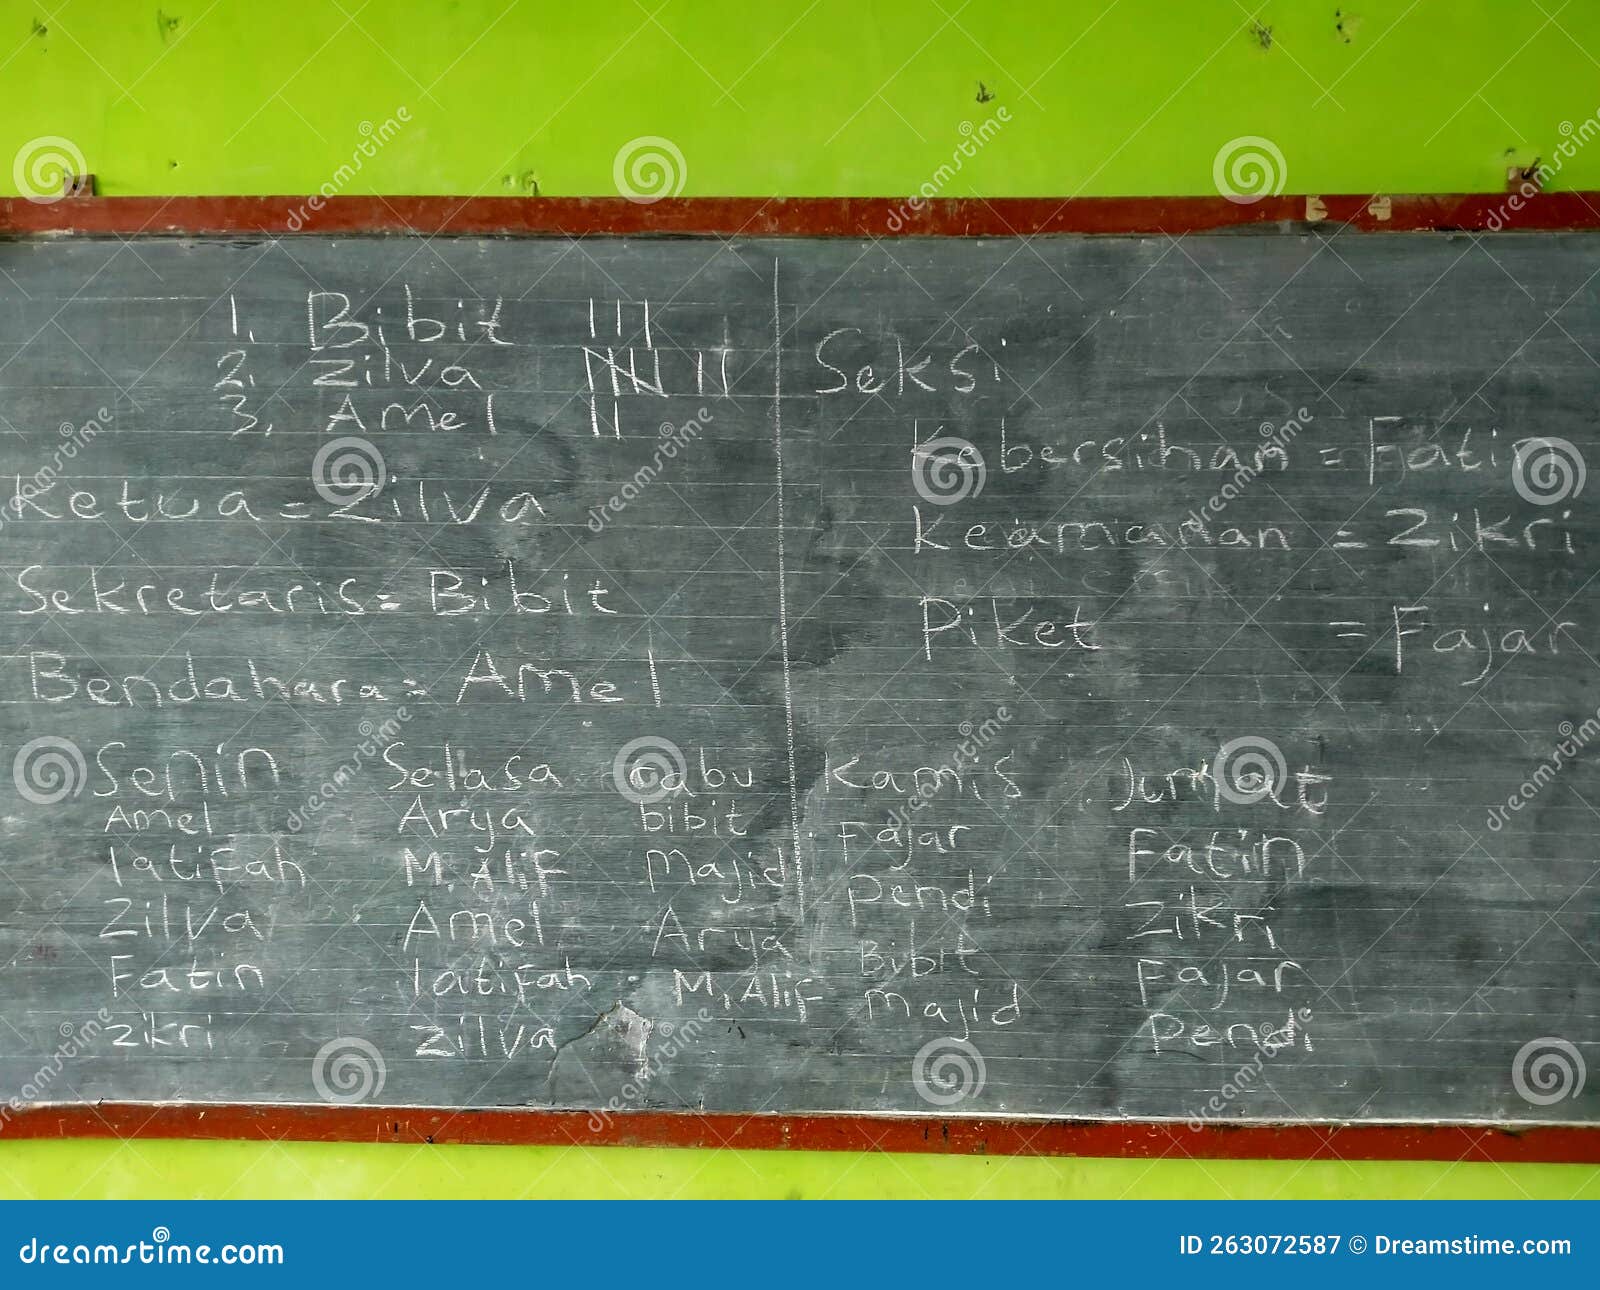 1. Bibit III
2. Zilva IIII II
3. Amel II
Ketua = Zilva
Sekretaris = Bibit
Bendahara = Amel
Seksi
Kebersihan = Fatin
Keamanan = Zikri
Piket = Fajar
Senin Selasa Rabu Kamis Jumat
Amel Arya bibit Fajar Fatin
latifah M. Alif Majid Pendi Zikri
Zilva Amel Arya Bibit Fajar
Fatin latifah M. Alif Majid Pendi
Zikri Zilva
dreamstime.com
ID 263072587 © Dreamstime.com